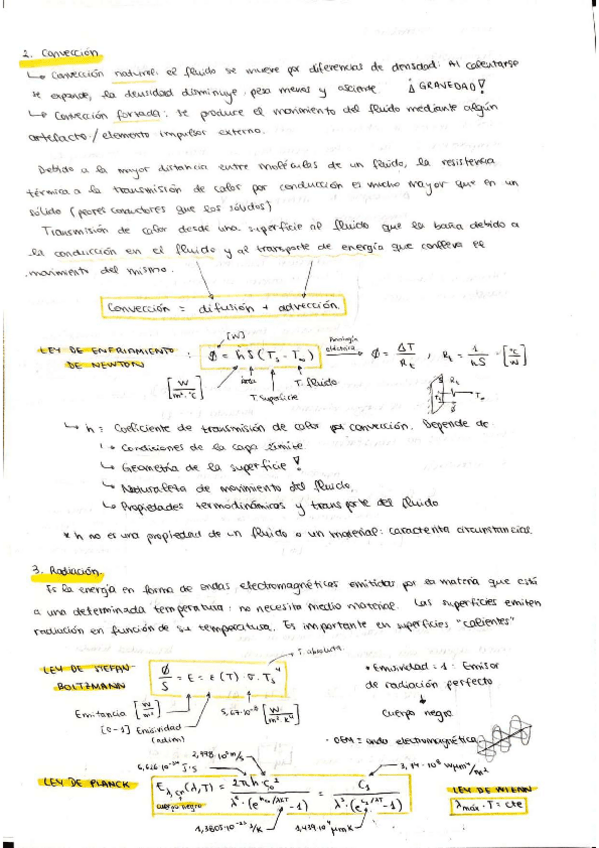 2. Convección
↳ Convección natural: el fluido se mueve por diferencias de densidad: Al calentarse
se expande, la densidad disminuye, pesa menos y asciende. ¡GRAVEDAD!
↳ Convección forzada: se produce el movimiento del fluido mediante algún
artefacto/elemento impulsor externo.
Debido a la mayor distancia entre moléculas de un fluido, la resistencia
térmica a la transmisión de calor por conducción es mucho mayor que en un
sólido (peores conductores que los sólidos)
Transmisión de calor desde una superficie al fluido que la baña debido a
la conducción en el fluido y al transporte de energía que conlleva el
movimiento del mismo.
Convección = difusión + advección.
[W]
LEY DE ENFRIAMIENTO DE NEWTON : Φ = h S (Ts - T∞) Analogía eléctrica Φ = ΔT / Rt , Rt = 1 / hS = [°C/W]
[W / m²·°C] área T. Superficie T. fluido
Rt Ts T∞ Φ
↳ h = Coeficiente de transmisión de calor por convección. Depende de:
↳ Condiciones de la capa límite.
↳ Geometría de la superficie !
↳ Naturaleza de movimiento del fluido.
↳ Propiedades termodinámicas y transporte del fluido
* h no es una propiedad de un fluido o un material: caracteriza circunstancias.
3. Radiación
Es la energía en forma de ondas electromagnéticas emitidas por la materia que está
a una determinada temperatura: no necesita medio material. Las superficies emiten
radiación en función de su temperatura. Es importante en superficies "calientes"
T. absoluta
LEY DE STEFAN BOLTZMANN Φ/S = E = ε(T) · σ · Ts⁴
Emitancia [W/m²] 5,67·10⁻⁸ [W / m²·K⁴]
[0-1] Emisividad (adim)
• Emisividad = 1: Emisor
de radiación perfecto
cuerpo negro
· OEM = onda electromagnética
6,626·10⁻³⁴ J·S
LEY DE PLANCK E λ,cn (λ,T) = 2πh·c₀² / λ⁵·(e^(hc₀/λkT) - 1) = C₁ / λ⁵·(e^(C₂/λT) - 1)
cuerpo negro
LEY DE WIENN
λmáx · T = cte